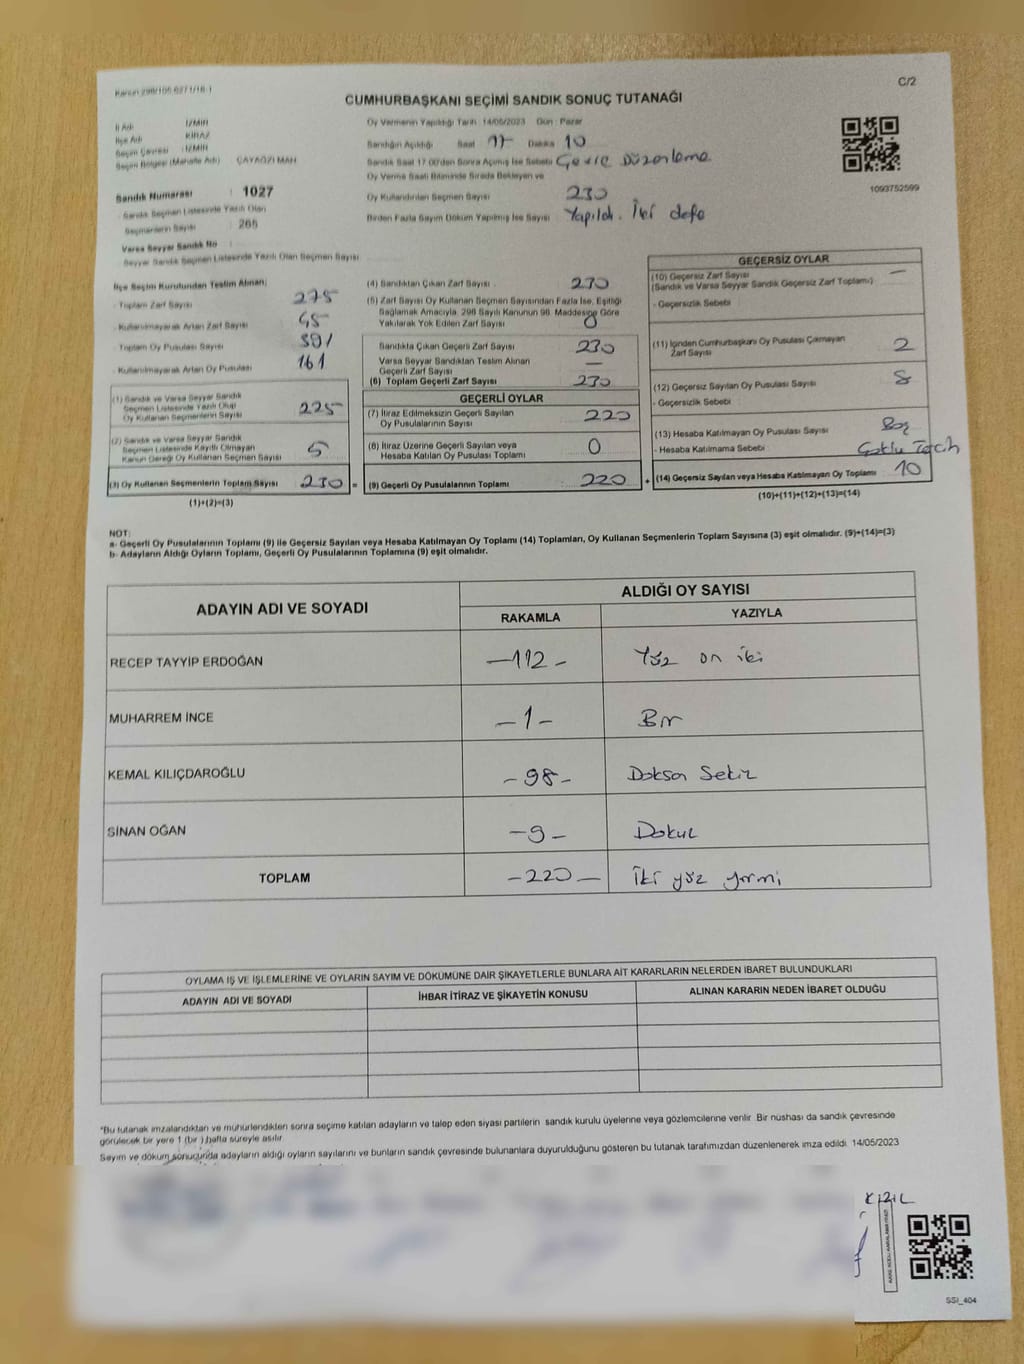 Kanun 298/105 6271/18-1
C/2
CUMHURBAŞKANI SEÇİMİ SANDIK SONUÇ TUTANAĞI
İl Adı : İZMİR
İlçe Adı : KİRAZ
Seçim Çevresi : İZMİR
Seçim Bölgesi (Mahalle Adı) : ÇAYAĞZI MAH
Sandık Numarası : 1027
Sandık Seçmen Listesinde Yazılı Olan
Seçmenlerin Sayısı : 265
Varsa Seyyar Sandık No
Seyyar Sandık Seçmen Listesinde Yazılı Olan Seçmen Sayısı
Oy Vermenin Yapıldığı Tarih : 14/05/2023 Gün : Pazar
Sandığın Açıldığı Saat 17 Dakika 10
Sandık Saat 17:00'den Sonra Açılmış İse Sebebi Çevre Düzenleme
Oy Verme Saati Bitiminde Sırada Bekleyen ve
Oy Kullandırılan Seçmen Sayısı 230
Birden Fazla Sayım Döküm Yapılmış İse Sayısı Yapıldı. İki defa
1093752599
İlçe Seçim Kurulundan Teslim Alınan;
- Toplam Zarf Sayısı 275
- Kullanılmayarak Artan Zarf Sayısı 45
- Toplam Oy Pusulası Sayısı 391
- Kullanılmayarak Artan Oy Pusulası 161
(1) Sandık ve Varsa Seyyar Sandık
Seçmen Listesinde Yazılı Olup
Oy Kullanan Seçmenlerin Sayısı 225
(2) Sandık ve Varsa Seyyar Sandık
Seçmen Listesinde Kayıtlı Olmayan
Kanun Gereği Oy Kullanan Seçmen Sayısı 5
(3) Oy Kullanan Seçmenlerin Toplam Sayısı 230 =
(1)+(2)=(3)
(4) Sandıktan Çıkan Zarf Sayısı 230
(5) Zarf Sayısı Oy Kullanan Seçmen Sayısından Fazla İse, Eşitliği
Sağlamak Amacıyla, 298 Sayılı Kanunun 98. Maddesine Göre
Yakılarak Yok Edilen Zarf Sayısı 0
Sandıkta Çıkan Geçerli Zarf Sayısı 230
Varsa Seyyar Sandıktan Teslim Alınan
Geçerli Zarf Sayısı —
(6) Toplam Geçerli Zarf Sayısı 230
GEÇERLİ OYLAR
(7) İtiraz Edilmeksizin Geçerli Sayılan
Oy Pusulalarının Sayısı 220
(8) İtiraz Üzerine Geçerli Sayılan veya
Hesaba Katılan Oy Pusulası Toplamı 0
(9) Geçerli Oy Pusulalarının Toplamı 220 +
GEÇERSİZ OYLAR
(10) Geçersiz Zarf Sayısı —
(Sandık ve Varsa Seyyar Sandık Geçersiz Zarf Toplamı)
- Geçersizlik Sebebi
(11) İçinden Cumhurbaşkanı Oy Pusulası Çıkmayan
Zarf Sayısı 2
(12) Geçersiz Sayılan Oy Pusulası Sayısı 8
- Geçersizlik Sebebi
(13) Hesaba Katılmayan Oy Pusulası Sayısı Boş
- Hesaba Katılmama Sebebi Çoklu Tercih
(14) Geçersiz Sayılan veya Hesaba Katılmayan Oy Toplamı 10
(10)+(11)+(12)+(13)=(14)
NOT:
a- Geçerli Oy Pusulalarının Toplamı (9) ile Geçersiz Sayılan veya Hesaba Katılmayan Oy Toplamı (14) Toplamları, Oy Kullanan Seçmenlerin Toplam Sayısına (3) eşit olmalıdır. (9)+(14)=(3)
b- Adayların Aldığı Oyların Toplamı, Geçerli Oy Pusulalarının Toplamına (9) eşit olmalıdır.
ADAYIN ADI VE SOYADI
ALDIĞI OY SAYISI
RAKAMLA YAZIYLA
RECEP TAYYİP ERDOĞAN —112— Yüz on iki
MUHARREM İNCE —1— Bir
KEMAL KILIÇDAROĞLU —98— Doksan Sekiz
SİNAN OĞAN —9— Dokuz
TOPLAM —220— İki yüz yirmi
OYLAMA İŞ VE İŞLEMLERİNE VE OYLARIN SAYIM VE DÖKÜMÜNE DAİR ŞİKAYETLERLE BUNLARA AİT KARARLARIN NELERDEN İBARET BULUNDUKLARI
ADAYIN ADI VE SOYADI İHBAR İTİRAZ VE ŞİKAYETİN KONUSU ALINAN KARARIN NEDEN İBARET OLDUĞU
"Bu tutanak imzalandıktan ve mühürlendikten sonra seçime katılan adayların ve talep eden siyasi partilerin sandık kurulu üyelerine veya gözlemcilerine verilir. Bir nüshası da sandık çevresinde
görülecek bir yere 1 (bir ) hafta süreyle asılır.
Sayım ve döküm sonucunda adayların aldığı oyların sayılarını ve bunların sandık çevresinde bulunanlara duyurulduğunu gösteren bu tutanak tarafımızdan düzenlenerek imza edildi. 14/05/2023
KIZIL
SSİ_404